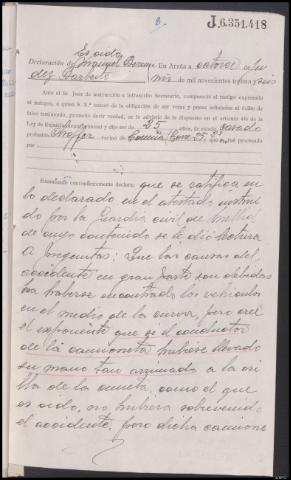 J.6.351.418
Escudo
Declaración de Manuel En Arzúa a catorce de
dez Barbeito mil de mil novecientos treinta y seis
Ante el Sr. Juez de instrucción e infrascrito Secretario, compareció el testigo expresado
al margen, a quien S. S.ª enteró de la obligación de ser veraz y penas señaladas al delito de
falso testimonio, prometió decir verdad, se le advirtió de lo dispuesto en el artículo 446 de la
Ley de Enjuiciamiento criminal y dijo ser de 25 años, de estado casado
profesión Chofer vecino de Coruña, 25, 2º que no fué procesado
por
Examinado convenientemente declara: que se ratifica en
lo declarado en el atestado instrui
do por la Guardia civil de Mellid
de cuyo contenido se le dió lectura
A preguntas: Que las causas del
accidente en gran parte son debidas
ha haberse encontrado los vehículos
en el medio de la curva, pero cree
el exponente que si el conductor
de la camioneta hubiese llevado
su mano tan arrimado a la ori
lla de la cuneta, como el que
es oido, no hubiera sobrevenido
el accidente, pero dicha camione